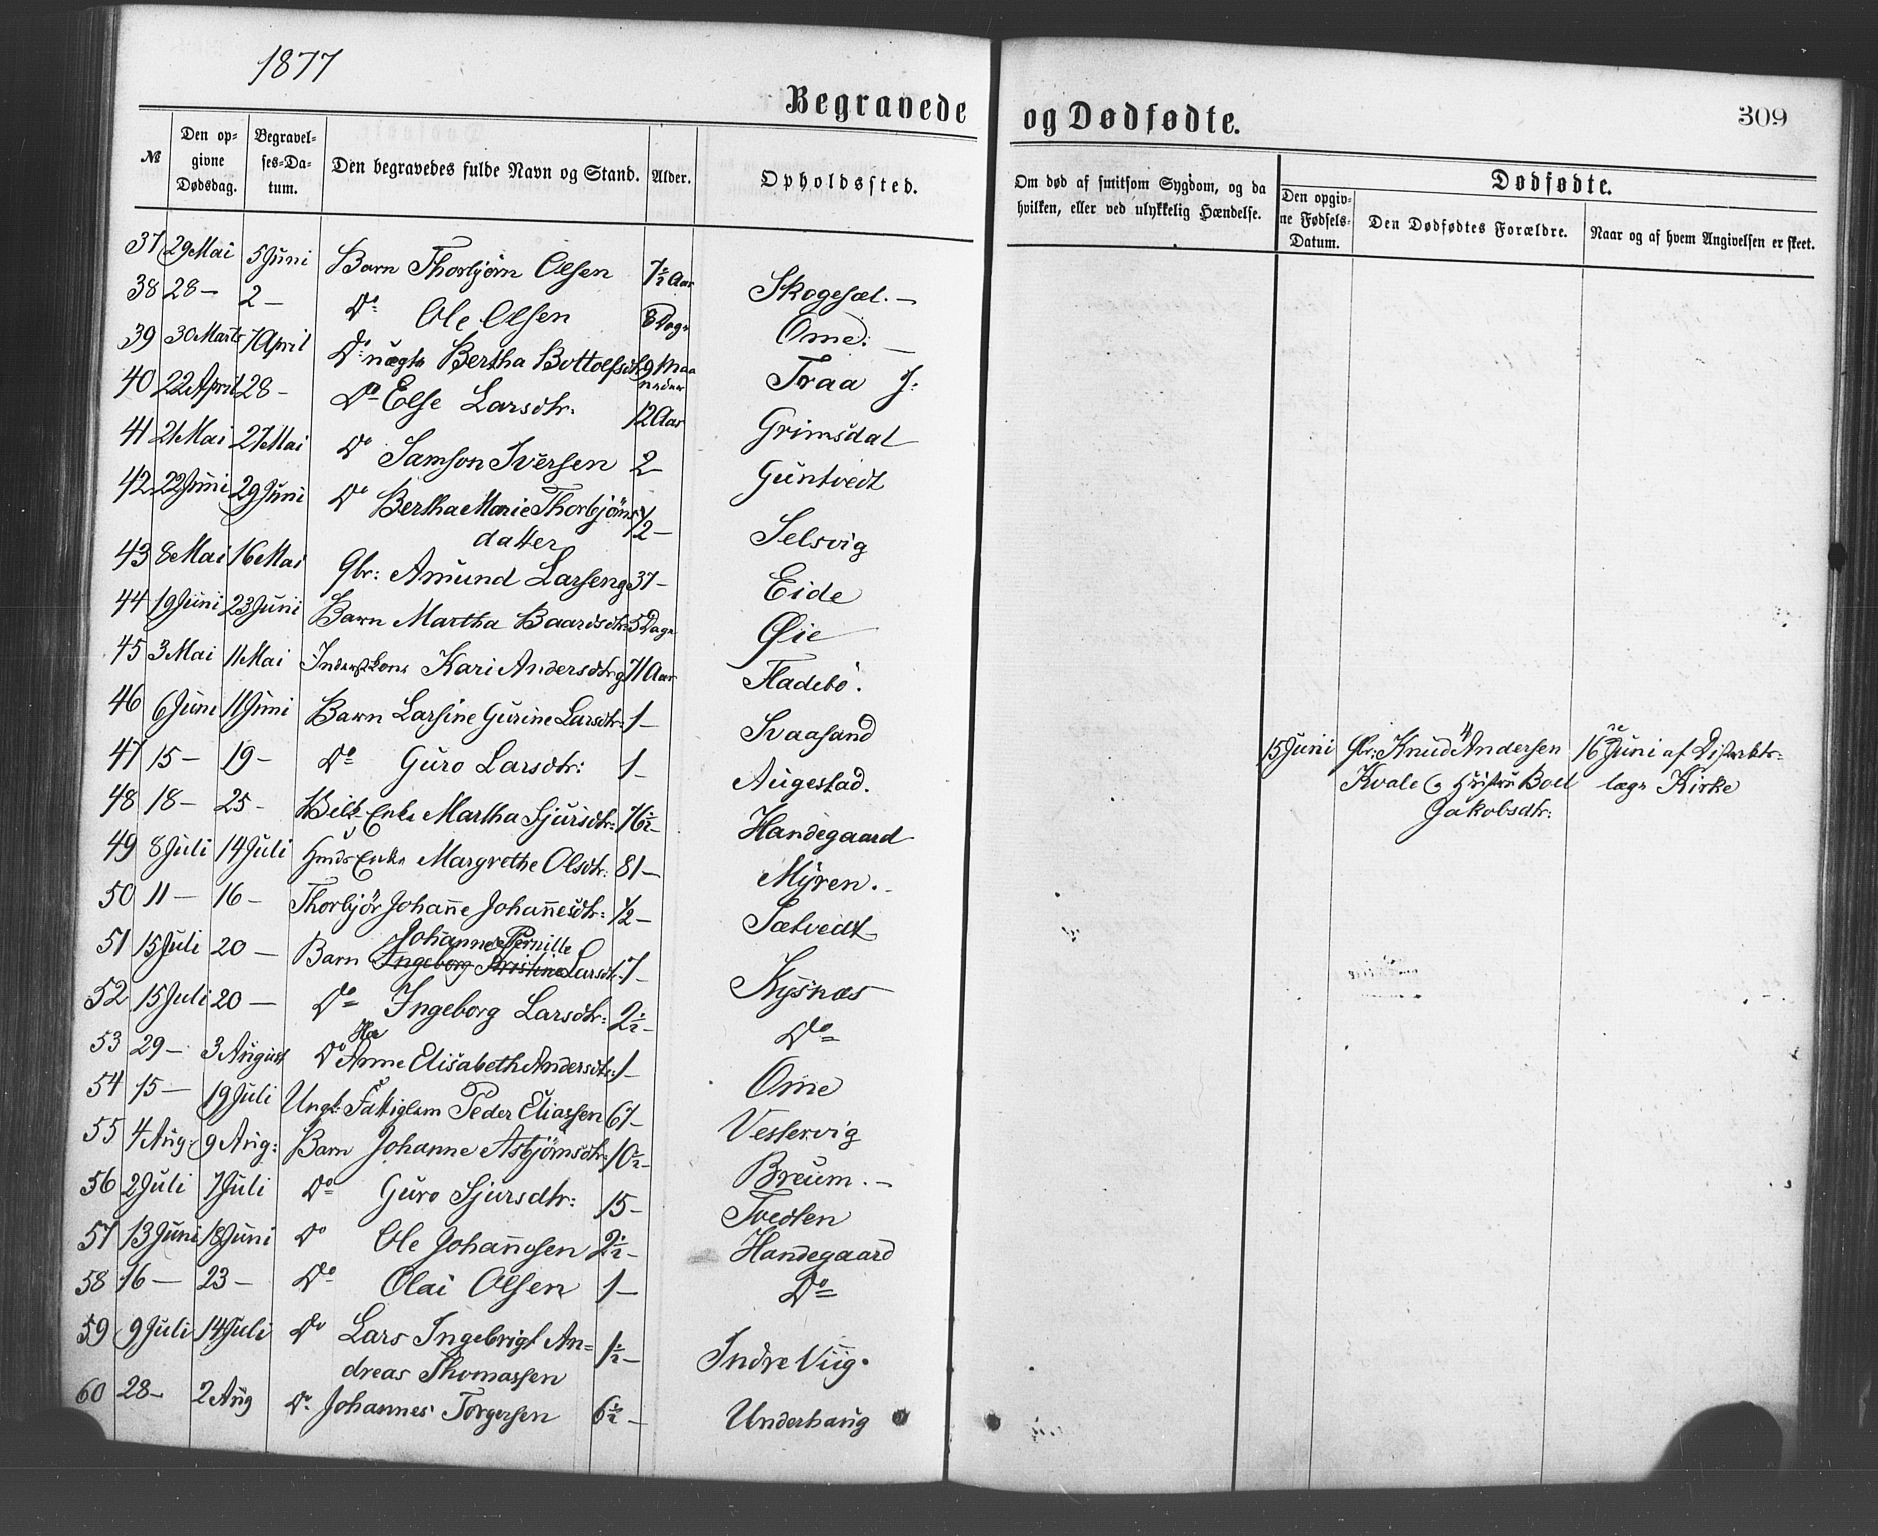 1877
Begravede og Dødfødte. 309
№ Den opgivne Dødsdag. Begravelses-Datum. Den begravedes fulde Navn og Stand. Alder. Opholdssted. Om død af smitsom Sygdom, og da hvilken, eller ved ulykkelig Hændelse. Dødfødte. Den opgivne Fødsels-Datum. Den Dødfødtes Forældre. Naar og af hvem Angivelsen er skeet.
37 29 Mai 5 Juni Barn Thorbjørn Olsen 7½ Aar Skogesæl. –
38 28 – 2 – Do Ole Olsen 8 Dage Ome. –
39 30 Marts 7 April Do uægte Bertha Bottolfsdtr. 9 Maaneder Traa J:
40 22 April 28 – Do Else Larsdtr. 12 Aar Grimsdal
41 21 Mai 27 Mai Do Samson Iversen 2 – Guntvedt
42 22 Juni 29 Juni Do Bertha Marie Thorbjöns
datter ½ – Selsvig
43 8 Mai 16 Mai Gbr: Amund Larsen g 37 – Eide
44 19 Juni 23 Juni Barn Martha Baardsdtr: 5 Dage Øie
45 3 Mai 11 Mai Inderstkone Kari Andersdtr g 71 Aar Fladebö.
46 6 Juni 11 Juni Barn Larsine Gurine Larsdtr: 1 – Svaasand
47 15 – 19 – Do Guro Larsdtr: 1 – Augestad.
48 18 – 25 – Enke Martha Sjursdtr: 76½ – Handegaard
49 8 Juli 14 Juli Hmds Enke Margrethe Olsdtr: 81 – Myren. –
50 11 – 16 – Thorbjör Johanne Johannesdtr: ½ – Sætvedt
Johanne Pernille
51 15 Juli 20 – Barn Ingeborg Kristine Larsdtr. 7 – Kysnæs
52 15 Juli 20 – Do Ingeborg Larsdtr: 2½ – Do
53 29 – 3 August Do Anne Elisabeth Andersdtr: 1 – Ome
54 15 – 19 Juli Ungk: Fattiglem Peder Eliassen 67 – Vestervig
55 4 Aug: 9 Aug: Barn Johanne Asbjörnsdtr: 10½ – Breum. –
56 2 Juli 7 Juli Do Guro Sjursdtr: 15 – Tvedten
57 13 Juni 18 Juni Do Ole Johannesen 2½ – Handegaard
58 16 – 23 – Do Olai Olsen 1 – Do
59 9 Juli 14 Juli Do Lars Ingebrigt An=
dreas Thomassen 1½ – Indre Viig.
60 28 – 2 Aug Do Johannes Torgersen 6½ – Underhaug
15 Juni Gbr: Knud Andersen 16 Juni af Distrikts-
Kvale og Hustru Boel læge Kirke
Jakobsdtr: